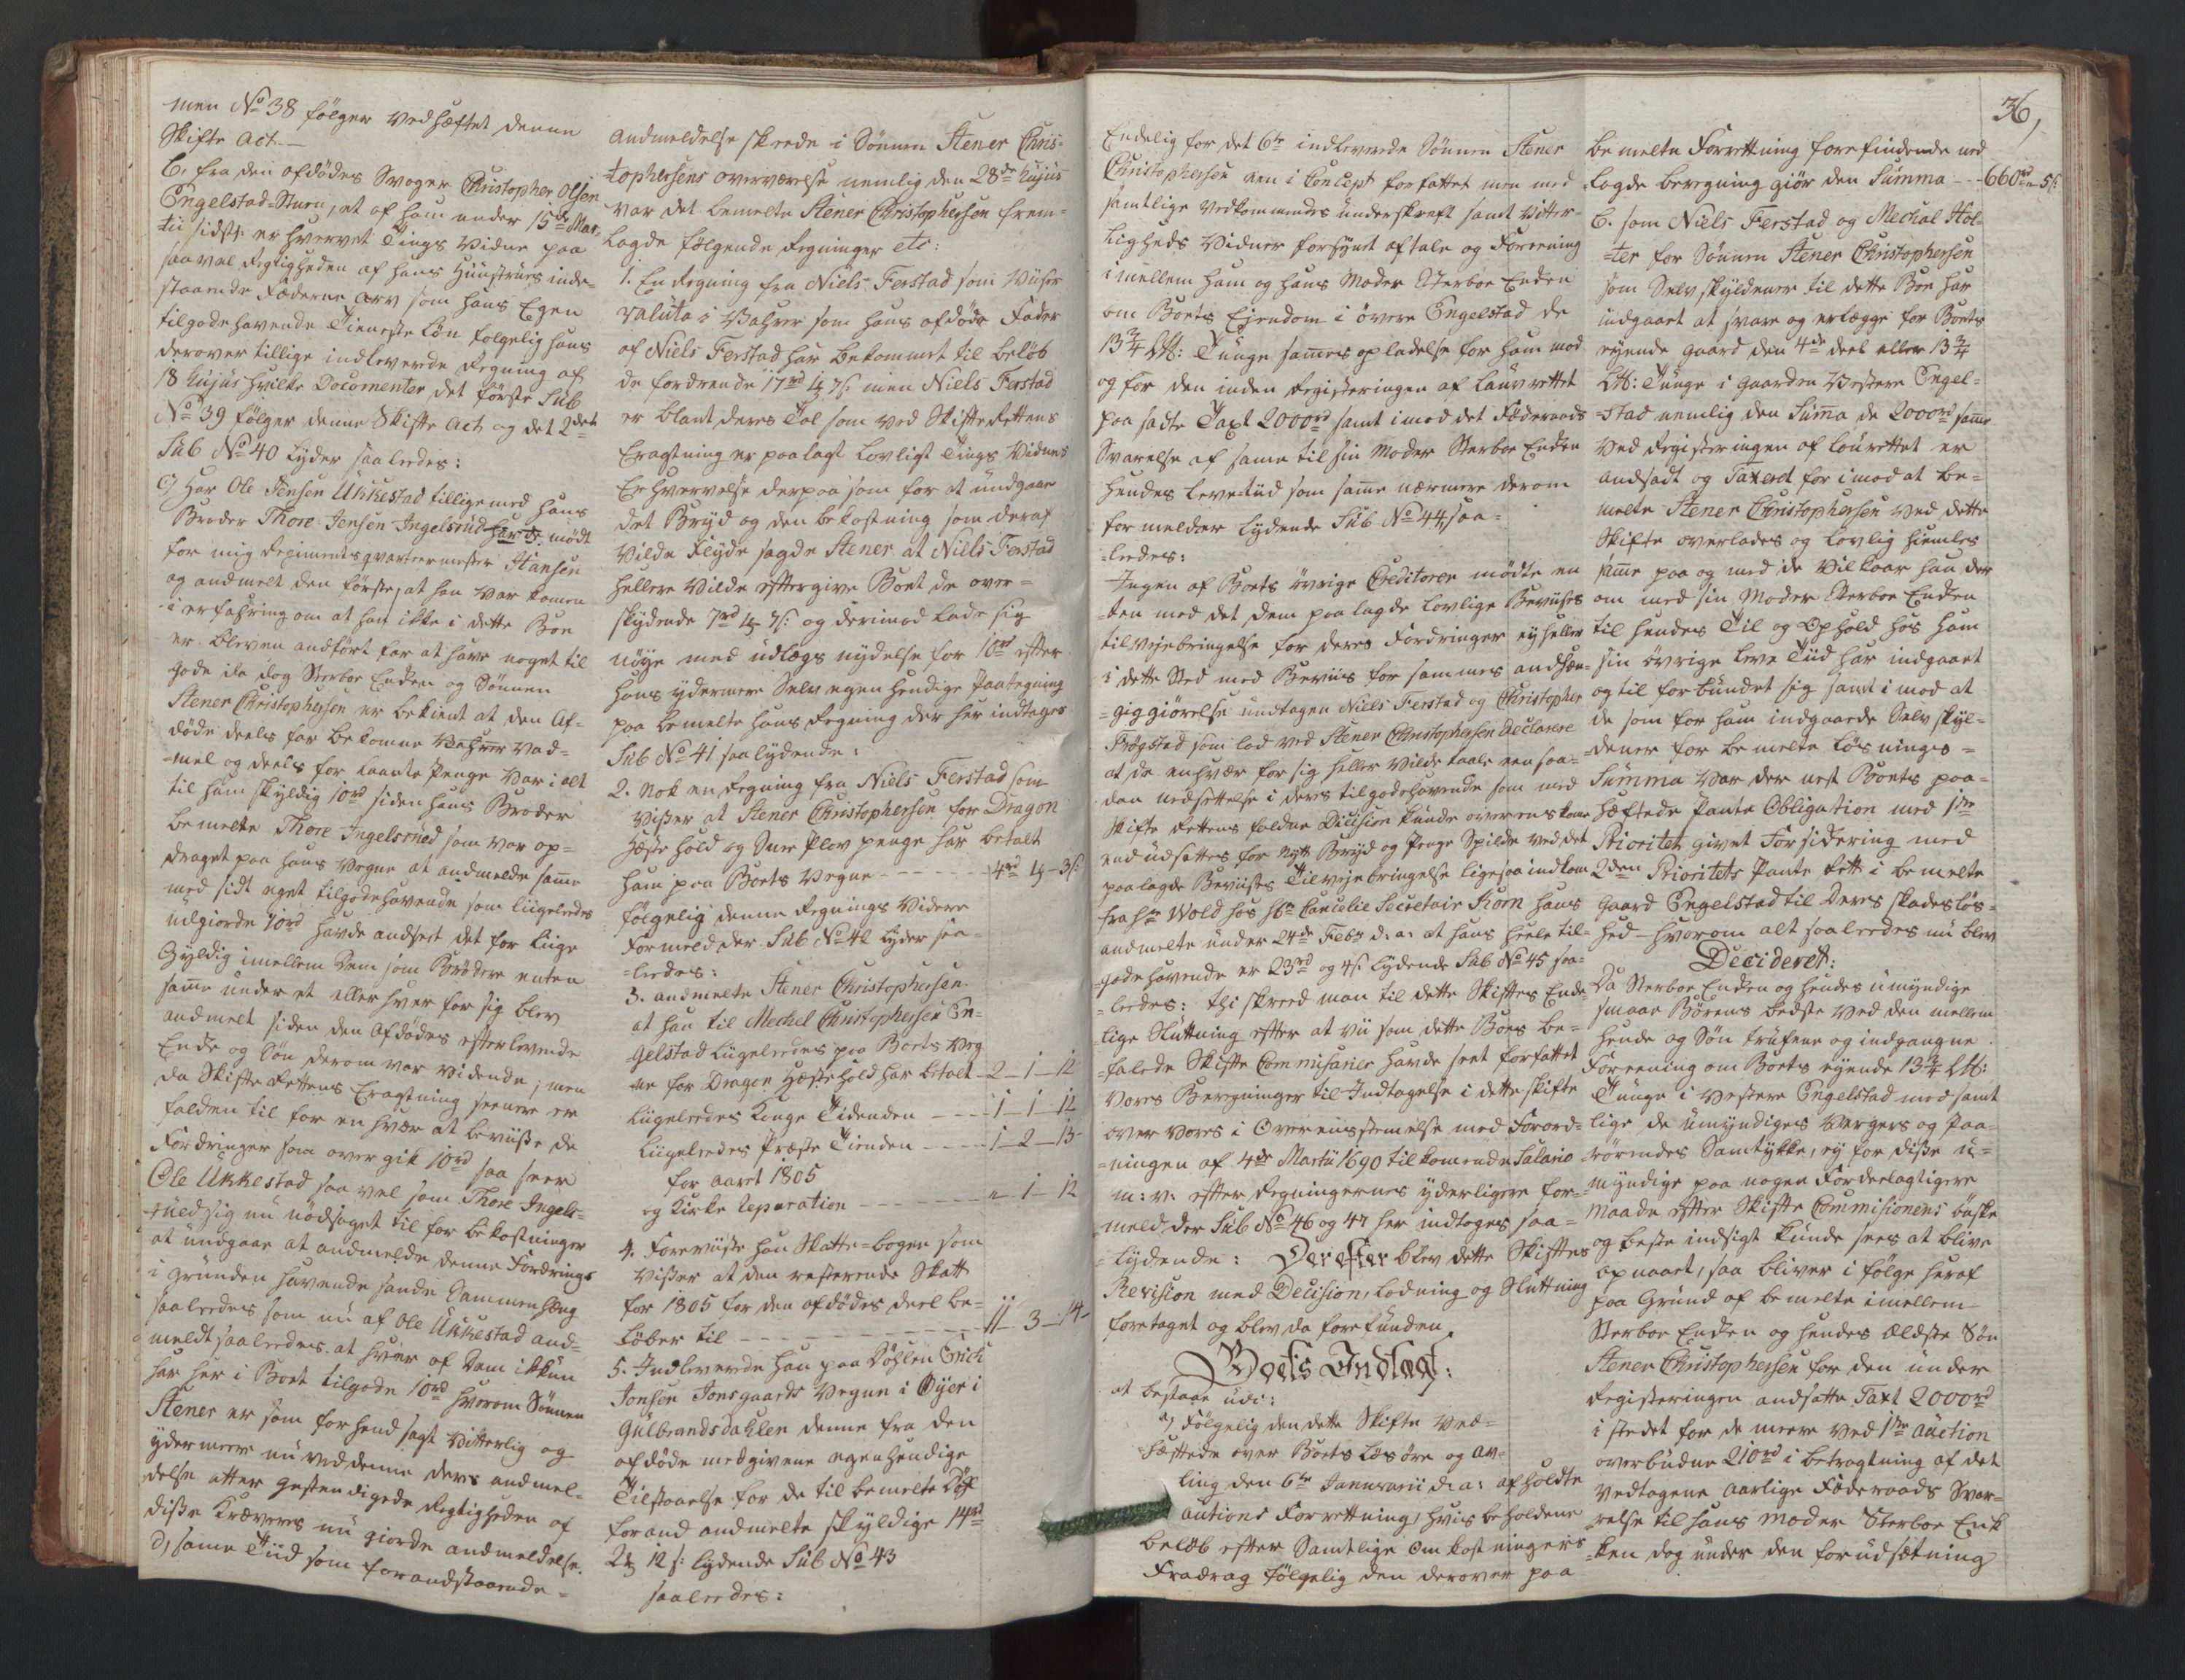 men No 38 følger vedhæftet denne
Skifte Act.
b, fra den afdødes Svoger Christopher Olsen
Engelstad-Stuen, et af ham under 15de Mar-
tii sidst: erhvervet Tings Vidne paa
saavel Rigtigheden af hans Huustrues inde-
staaende Fæderne Arv som hans Egen
tilgodehavende Tieneste Løn følgelig hans
derover tillige indleverede Regning af
18 hujus hvilke Documenter det første Sub
No 39 følger denne Skifte Act og det 2det
Sub No 40 lyder saaleedes:
c, Har Ole Jensen Ukkestad tillige med hans
Broder Thore Jensen Ingelsrud har d: mødt
for mig Regimentsqvarteermester Hansen
og andmelt den første, at han var komen
i erfahring om at han ikke i dette Boe
er bleven andført for at have noget til
gode da dog Sterboe Enken og Sønnen
Stener Christophersen er bekient at den Af-
døde deels for bekomne Vahrer Vad-
mel og deels for laante Penge var i alt
til ham skyldig 10rd siden hans Broder
bemelte Thore Ingelsrud som var op-
draget paa hans Vegne at andmelde samme
med sidt eget tilgodehavende som liigeleedes
udgiorde 10rd havde andseet det for liige
Gyldig imellem Dem som Brødre enten
samme under et eller hver for sig blev
andmelt siden den Afdødes efterlevende
Enke og Søn derom var vidende; men
da Skifte Rettens Eragtning seenere er
falden til for en hver at beviise de
Fordringer som over gik 10rd saa seer
Ole Ukkestad saa vel som Thore Ingels-
rud sig nu nødsaget til for bekostninger
at undgaae at andmelde denne Fordrings
i Grunden havende sande Sammenhæng
saaleedes som nu af Ole Ukkestad and-
meldt saaleedes at hver af Dem ikkun
har her i Boet tilgode 10rd hvorom Sønnen
Stener er som forhend sagt vitterlig og
ydermeere nu ved denne ders andmel-
delse atter gestendigede Rigtigheden af
disse Kræveres nu giorde andmeldelse.
d, same Tiid som forandstaaende
andmeldelse skeede i Sønnen Stener Chris-
tophersens overværelse nemlig den 28de hujus
var det bemelte Stener Christophersen frem-
lagde følgende Regninger etc:
1. En Regning fra Niels Ferstad som viiser
valuta i Vahrer som hans afdøde Fader
af Niels Ferstad har bekommet til beløb
de fordrende 17rd 4 7s: men Niels Ferstad
er blant deres Tal som ved Skifte Rettens
Eragtning er paalagt Lovligt Tings Vidnes
Erhvervelse derpaa som for at undgaae
det Bryd og den bekostning som deraf
vilde flyde sagde Stener at Niels Ferstad
hellere vilde eftergive Boet de over-
skydende 7rd 4 7s: og derimod lade sig
nøye med udlægs nydelse for 10rd efter
hans ydermere Selv egen hendige Paategning
paa bemelte hans Regning der her indtages
Sub No 41 saalydende:
2. Nok en Regning fra Niels Ferstad som
viser at Stener Christophersen for Dragon
Hæste hold og Snee Plov penge har betalt
ham paa Boets Vegne - - - - 4rd 4 - 3s:
følgelig denne Regnings videre
Formeld der Sub No 42 lyder saa-
leedes:
3. andmelte Stener Christophersen
at han til Mechel Christophersen En-
gelstad liigeleedes paa Boets Veg-
ne for Dragon Hæstehold har betalt - 2 - 1 - 12
Liigeleedes Konge Tidenden - - - 1 - 1 - 12
Liigeleedes Præste Tienden - - - 1 - 2 - 13
for aaret 1805
og Kirke Reparation - - - - - 1 - 12
4. Foreviiste han Skatte-bogen som
viser at den resterende Skatt
for 1805 for den afdødes deel be-
løber til - - - - - 11 - 3 - 14
5. Indleverede han paa Døhlen Erich
Jonsen Jonsgaards Vegne i Øyer i
Gulbrandsdahlen denne fra den
afdøde medgivene egenhendige
Tilstaaelse for de til bemelte
forand andmelte skyldige 14rd
2 12 s: lydende Sub No 43
saaleedes:
36,
Endelig for det 6te indleverede Sønnen Stener
Christophersen een i Concept forfattet men med
samtlige vedkommendes underskreft samt Vitter-
ligheds Vidner forsynet aftale og Foreening
imellem ham og hans Moder Sterboe Enken
om Boets Ejendom i øvere Engelstad de
13 3/4 LH: Tunge sammes opladelse for ham mod
og for den inden Registeringen af Lauvrettet
paa satte Taxt 2000rd samt imod det Føderaads
Svarelse af same til sin Moder Sterboe Enken
hendes levetiid som same nærmere derom
formelder lydende Sub No 44, saa-
leedes:
Ingen af Boets øvrige Creditorer mødte en
ten med det dem paa lagde lovlige Beviises
tilvejebringelse for deres Fordringer ey heller
i dette Sted med Beviis for sammes andhæn-
giggiørelse undtagen Niels Ferstad og Christopher
Frøgstad som lod ved Stener Christophersen Declarere
at de enhver for sig heller vilde taale een saa-
dan nedsettelse i ders tilgodehavende som med
Skifte Rettens faldne Dicision kunde overens kome
end udsættes for nytt Bryd og Penge Spilde ved det
paalagde Beviises Tilvejebringelse ligesaa indkom
fra Hr Wold hos Hr Cancelie Secretair Korn hans
andmelte under 24de Febr d: a: at hans heele til-
gode havende er 23rd og 4s: lydende Sub No 45 saa-
leedes: thi skreed man til dette Skiftes Ende-
lige Sluttning efter at vii som dette Boes be-
falede Skifte Commisarier havde seet forfattet
vores Beregninger til Indtagelse i dette skifte
over vores i Overeensstemelse med Forord-
ningen af 4de Martii 1690 tilkomende Salario
m: v: efter Regningernes yderligere for-
meld der Sub No 46 og 47 her indtages saa-
lydende: Derefter blev dette Skiftes
Revision med Decision, Lodning og Sluttning
foretaget og blev da forefunden
Boets Indtægt:
at bestaae udi:
a, Følgelig den dette Skifte ved-
heftede over Boets løsøre og av-
ling den 6te Januarii d: a: afholdte
Autions Forrettning, hvis beholdene
beløb efter Samtlige Omkostningers
Fradrag følgelig den derover paa
bemelte Forrettning forefindende ned
lagde beregning giør den Summa - - 660rd - 5s:
b. som Niels Ferstad og Mechal Hol-
ter for Sønnen Stener Christophersen
som Selv skyldener til dette Boe har
indgaaet at svare og erlægge for Boets
eyende gaard den 4de deel eller 13 3/4
LH: Tunge i Gaarden Vestere Engel-
stad nemlig den Suma de 2000rd same
ved Registeringen af Lourettet er
andsadt og Taxeret for imod at be-
melte Stener Christophersen ved dette
Skifte overlades og lovlig hiemles
same paa og med de Vilkaar han der
om med sin Moder Sterboe Enken
til hendes Til og Ophold hos ham
sin øvrige leve Tiid har indgaaet
og til forbundet sig samt imod at
de som for ham indgaaede Selv skyl-
dener for bemelte løsninges-
Summa var der nest Boets paa-
hæftede Pante Obligation med 1ste
Prioritet givet Forsickering med
2den Prioritets Pante Rett i bemelte
Gaard Engelstad til Deres skadesløs-
hed - hvorom alt saaleedes nu blev
Decideret:
Da Sterboe Enken og hendes umyndige
smaae Børens bedste ved den mellem
hende og Søn trufene og indgangne
Foreening om Boets eyende 13 3/4 LH:
Tunge i Vestere Engelstad med samt
lige de umyndiges Vergers og Paa-
rørendes Samtykke, ey for disse u-
myndige paa nogen Fordeelagtigere
maade efter Skifte Commisionens
og beste indsigt kunde sees at blive
opnaaet, saa bliver i følge heraf
paa Grund af bemelte imellem
Sterboe Enken og hendes Eldste Søn
Stener Christophersen for den under
Registeringen andsatte Taxt 2000rd
i stedet for de meere ved 1ste Auction
overbudne 210rd i betragtning af det
vedtagene aarlige Føderaads Svar-
relse til hans Moder Sterboe Enk
ken dog under den forudsætning